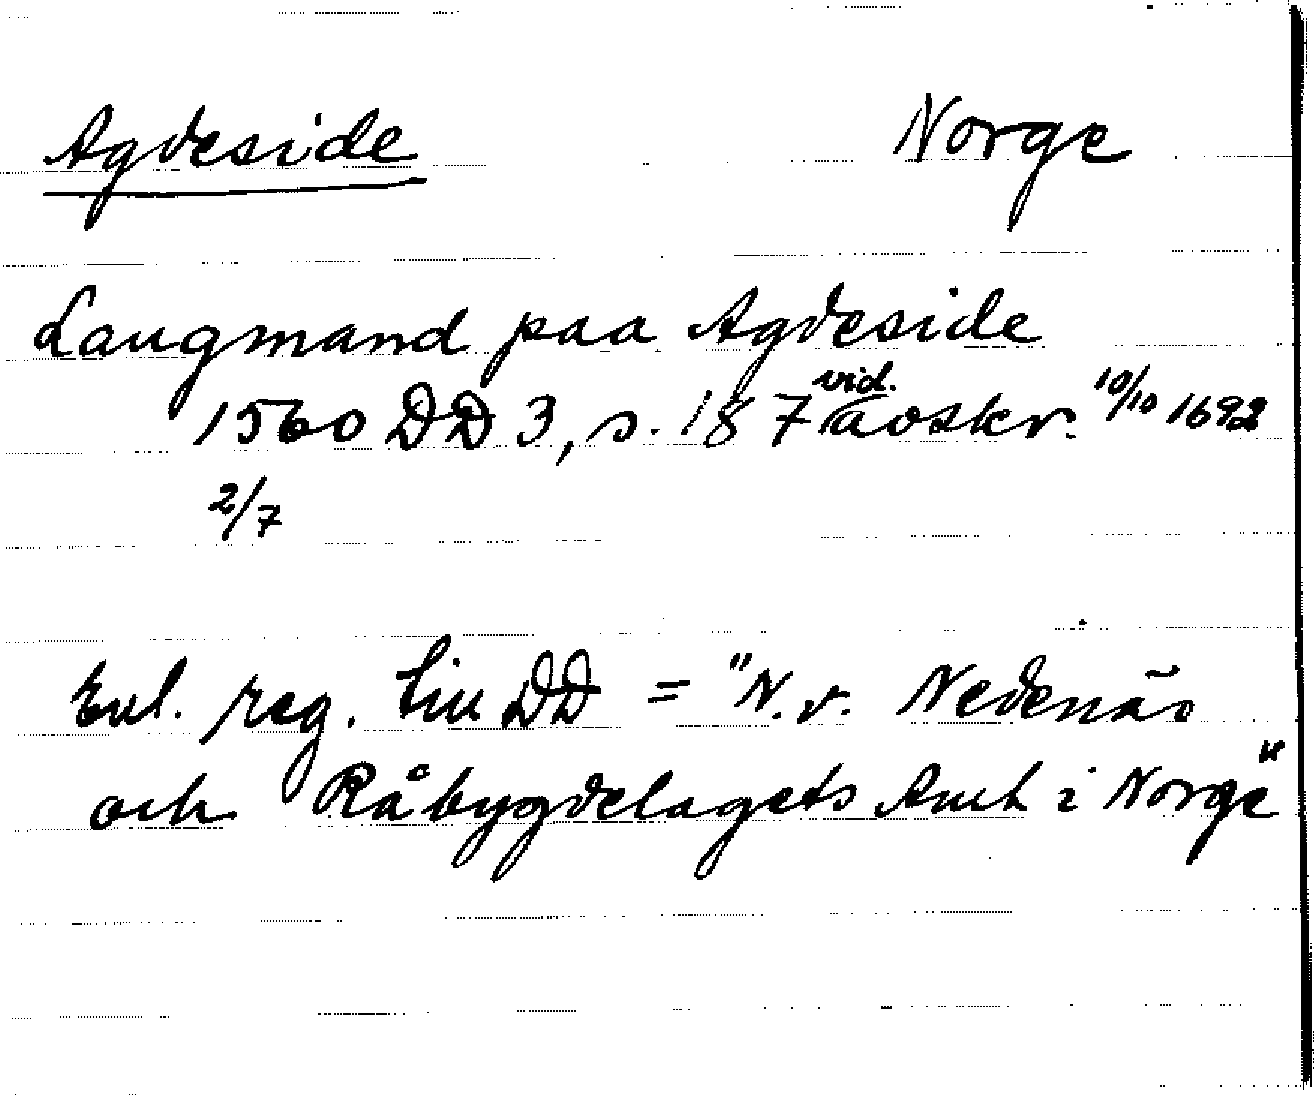 Agdeside Norge
Laugmand paa Agdeside
1560 DD 3, s. 187 vid. avskr. 10/10 1692
2/7
Enl. reg. till DD = "N. v. Nedenäs
och Råbygdelagets Amt i Norge"